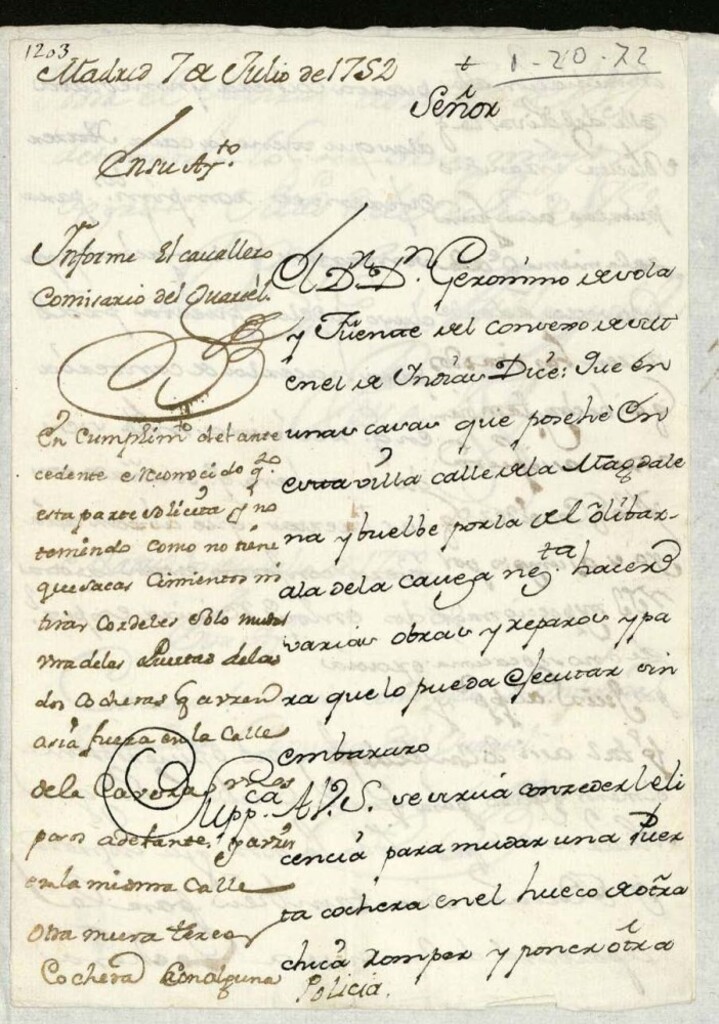 1203
Madrid 7 de Julio de 1752
1-20-72
+
Señor
En su Ay.to
Informe El cavallero
Comisario del Quartel.
El D.n D.n Geronimo de sola
y Fuente del consexo de su M
en el de Indias Dice: Que en
unas casas que posehe en
esta villa calle de la Magdale
na y buelbe por la del olibar
a la de la caveza ne.ta hacer
varias obras y reparos y pa
ra que lo pueda ejecutar sin
embarazo
Supp.ca A V.S. se sirva conzederle li
cencia para mudar una Puer
ta cochera en el hueco de otra
chica romper y poner otra
En cumplim.to del ante
cedente e reconocido q.e
esta parte solicita y no
teniendo como no tiene
que sacar Cimientos ni
tirar Cordeles solo mudar
una de las Puertas de las
dos Cocheras q avren
asia fuera en la Calle
de la Caveza
pasos adelante, y avrir
en la misma Calle
otra nueva
Cochera con alguna
Policia.